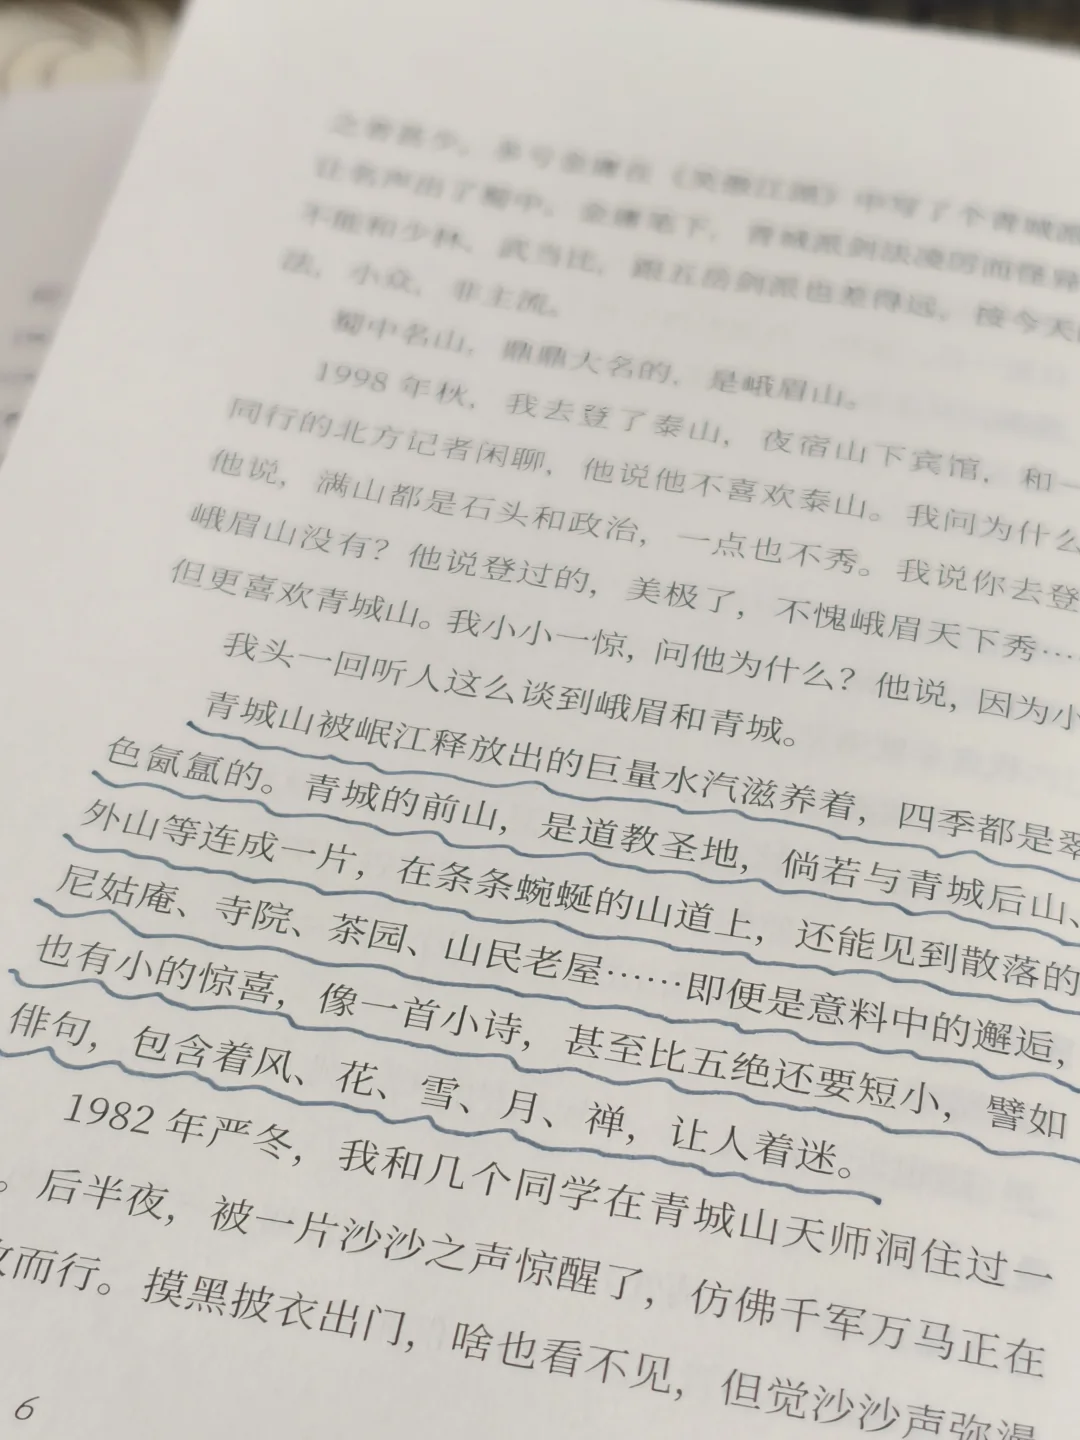 之者甚少，多亏金庸在《笑傲江湖》中写了个青城派
让名声出了蜀中。金庸笔下，青城派剑法凌厉而怪异
不能和少林、武当比，跟五岳剑派也差得远，按今天
法，小众，非主流。
蜀中名山，鼎鼎大名的，是峨眉山。
1998 年秋，我去登了泰山，夜宿山下宾馆，和一
同行的北方记者闲聊，他说他不喜欢泰山。我问为什么
他说，满山都是石头和政治，一点也不秀。我说你去登
峨眉山没有？他说登过的，美极了，不愧峨眉天下秀⋯
但更喜欢青城山。我小小一惊，问他为什么？他说，因为小
我头一回听人这么谈到峨眉和青城。
青城山被岷江释放出的巨量水汽滋养着，四季都是翠
色氤氲的。青城的前山，是道教圣地，倘若与青城后山、
外山等连成一片，在条条蜿蜒的山道上，还能见到散落的
尼姑庵、寺院、茶园、山民老屋……即便是意料中的邂逅，
也有小的惊喜，像一首小诗，甚至比五绝还要短小，譬如
俳句，包含着风、花、雪、月、禅，让人着迷。
1982 年严冬，我和几个同学在青城山天师洞住过一
。后半夜，被一片沙沙之声惊醒了，仿佛千军万马正在
而行。摸黑披衣出门，啥也看不见，但觉沙沙声弥漫
6